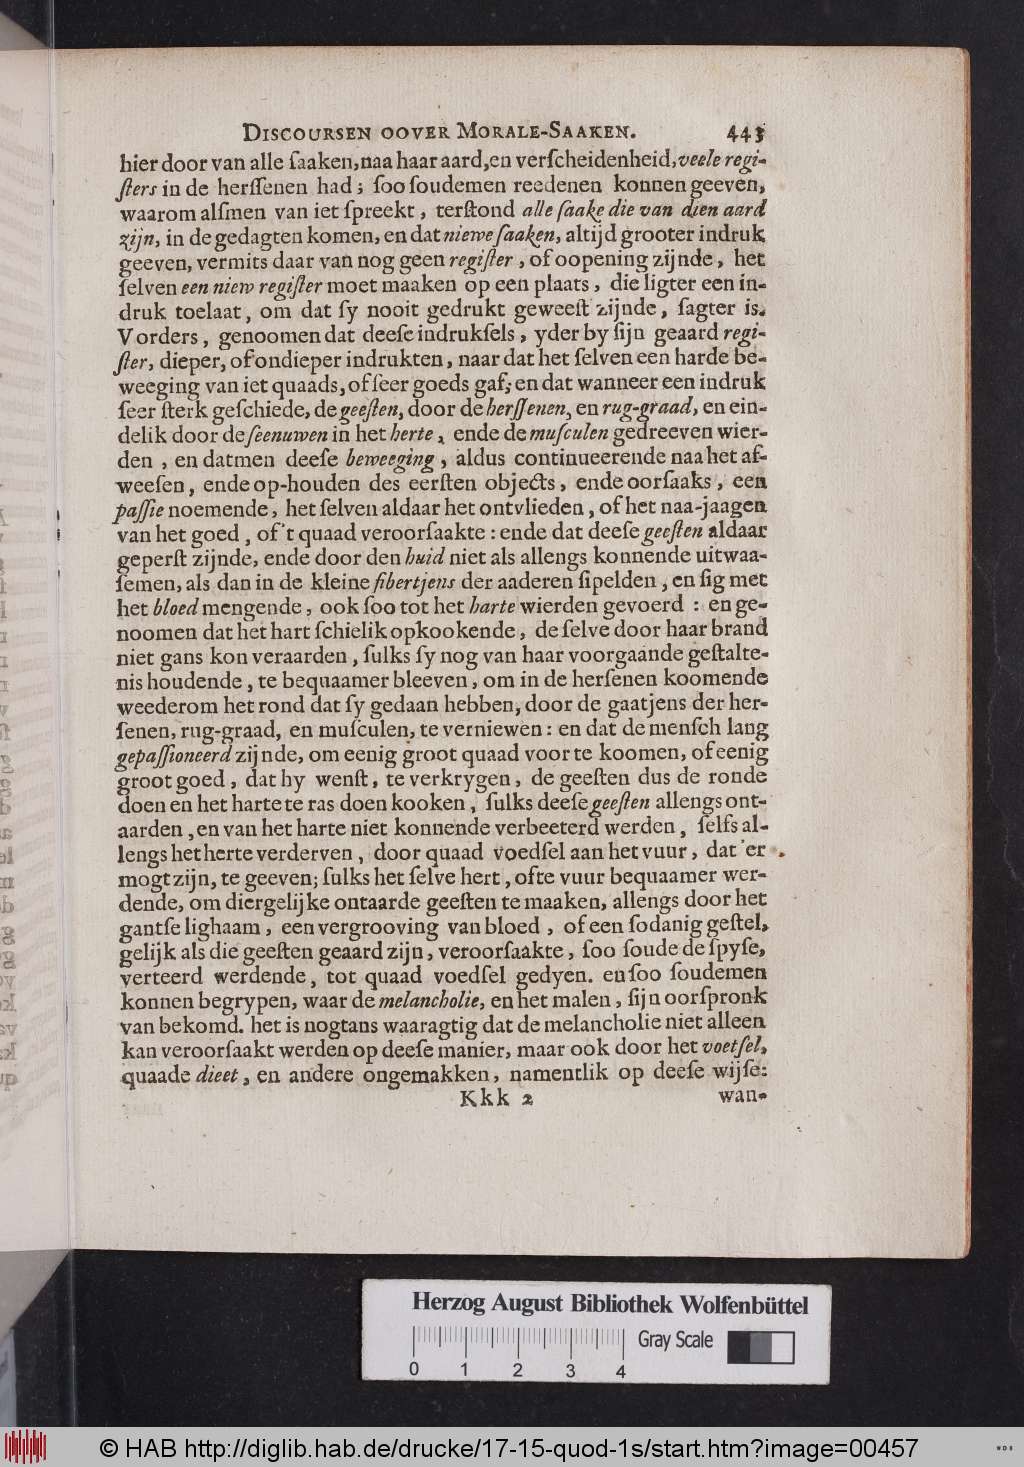 DISCOURSEN OOVER MORALE-SAAKEN. 443
hier door van alle ſaaken, naa haar aard, en verſcheidenheid, veele regi-
ſters in de herſſenen had; ſoo ſoudemen reedenen konnen geeven,
waarom alſmen van iet ſpreekt, terſtond alle ſaake die van dien aard
zijn, in de gedagten komen, en dat niewe ſaaken, altijd grooter indruk
geeven, vermits daar van nog geen regiſter, of oopening zijnde, het
ſelven een niew regiſter moet maaken op een plaats, die ligter een in-
druk toelaat, om dat ſy nooit gedrukt geweeſt zijnde, ſagter is.
Vorders, genoomen dat deeſe indrukſels, yder by ſijn geaard regi-
ſter, dieper, of ondieper indrukten, naar dat het ſelven een harde be-
weeging van iet quaads, of ſeer goeds gaf; en dat wanneer een indruk
ſeer ſterk geſchiede, de geeſten, door de herſſenen, en rug-graad, en ein-
delik door de ſeenuwen in het herte, ende de muſculen gedreeven wier-
den, en datmen deeſe beweeging, aldus continueerende naa het af-
weeſen, ende op-houden des eerſten objects, ende oorſaaks, een
paſſie noemende, het ſelven aldaar het ontvlieden, of het naa-jaagen
van het goed, of 't quaad veroorſaakte: ende dat deeſe geeſten aldaar
geperſt zijnde, ende door den huid niet als allengs konnende uitwaa-
ſemen, als dan in de kleine fibertjens der aaderen ſipelden, en ſig met
het bloed mengende, ook ſoo tot het harte wierden gevoerd: en ge-
noomen dat het hart ſchielik opkookende, de ſelve door haar brand
niet gans kon veraarden, ſulks ſy nog van haar voorgaande geſtalte-
nis houdende, te bequaamer bleeven, om in de herſenen koomende
weederom het rond dat ſy gedaan hebben, door de gaatjens der her-
ſenen, rug-graad, en muſculen, te verniewen: en dat de menſch lang
gepaſſioneerd zijnde, om eenig groot quaad voor te koomen, of eenig
groot goed, dat hy wenſt, te verkrygen, de geeſten dus de ronde
doen en het harte te ras doen kooken, ſulks deeſe geeſten allengs ont-
aarden, en van het harte niet konnende verbeeterd werden, ſelfs al-
lengs het herte verderven, door quaad voedſel aan het vuur, dat 'er
mogt zijn, te geeven; ſulks het ſelve hert, ofte vuur bequaamer wer-
dende, om diergelijke ontaarde geeſten te maaken, allengs door het
gantſe lighaam, een vergrooving van bloed, of een ſodanig geſtel,
gelijk als die geeſten geaard zijn, veroorſaakte, ſoo ſoude de ſpyſe,
verteerd werdende, tot quaad voedſel gedyen. en ſoo ſoudemen
konnen begrypen, waar de melancholie, en het malen, ſijn oorſpronk
van bekomd. het is nogtans waaragtig dat de melancholie niet alleen
kan veroorſaakt werden op deeſe manier, maar ook door het voetſel,
quaade dieet, en andere ongemakken, namentlik op deeſe wijſe:
Kkk 2 wan-
Herzog August Bibliothek Wolfenbüttel
Gray Scale
0 1 2 3 4
© HAB http://diglib.hab.de/drucke/17-15-quod-1s/start.htm?image=00457